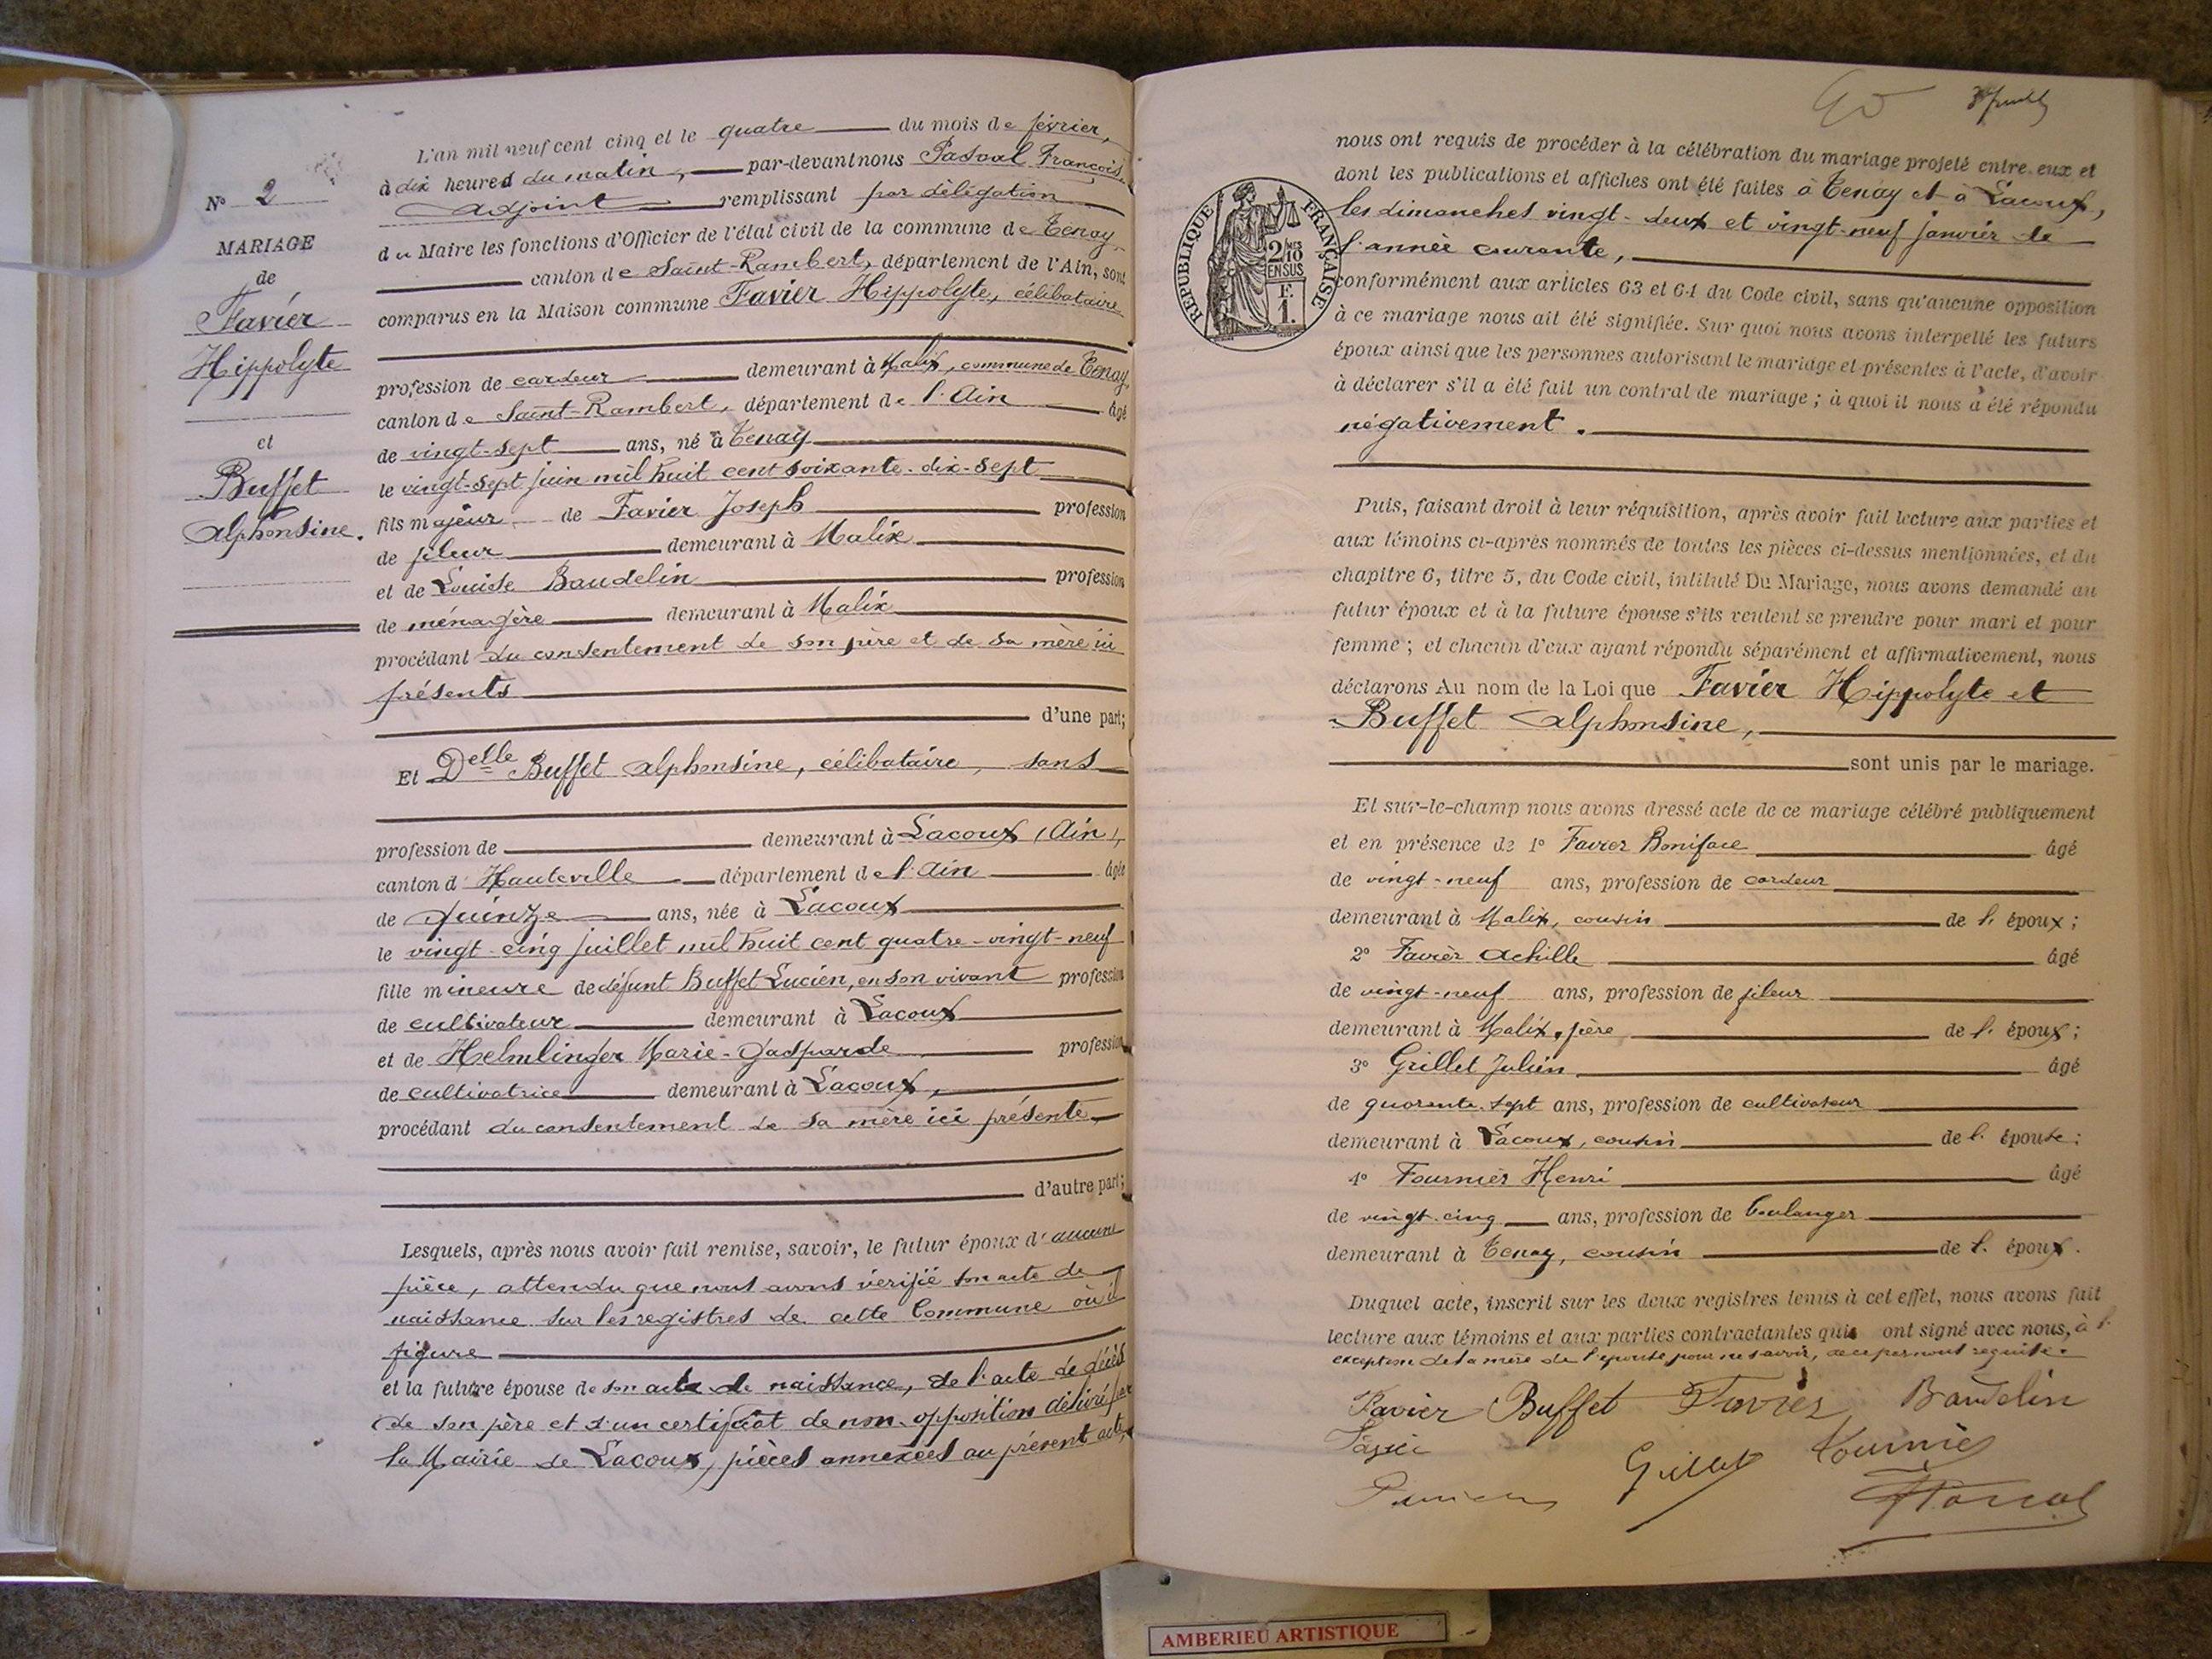 N° 2
MARIAGE
de
Favier
Hippolyte
et
Buffet
Alphonsine.
L'an mil neuf cent cinq et le quatre du mois de février,
à dix heures du matin, par-devant nous Pascal François,
adjoint remplissant par délégation
du Maire les fonctions d'Officier de l'état civil de la commune de Tenay,
canton de Saint-Rambert, département de l'Ain, sont
comparus en la Maison commune Favier Hippolyte, célibataire
profession de cardeur demeurant à Malix, commune de Tenay,
canton de Saint-Rambert, département de l'Ain âgé
de vingt-sept ans, né à Tenay
le vingt-sept juin mil huit cent soixante-dix-sept
fils majeur de Favier Joseph profession
de fileur demeurant à Malix
et de Louise Baudelin profession
de ménagère demeurant à Malix
procédant du consentement de son père et de sa mère ici
présents
d'une part;
Et Delle Buffet Alphonsine, célibataire, sans
profession de demeurant à Lacoux (Ain),
canton d' Hauteville département de l'Ain âgée
de quinze ans, née à Lacoux
le vingt-cinq juillet mil huit cent quatre-vingt-neuf
fille mineure de défunt Buffet Lucien, en son vivant profession
de cultivateur demeurant à Lacoux
et de Helmlinger Marie-Gasparde profession
de cultivatrice demeurant à Lacoux,
procédant du consentement de sa mère ici présente,
d'autre part;
Lesquels, après nous avoir fait remise, savoir, le futur époux d'aucune
pièce, attendu que nous avons vérifié son acte de
naissance sur les registres de cette Commune où il
figure
et la future épouse de son acte de naissance, de l'acte de décès
de son père et d'un certificat de non-opposition délivré par
la Mairie de Lacoux, pièces annexées au présent acte,
40
RÉPUBLIQUE FRANÇAISE
2/10 MES
EN SUS
F.
1.
nous ont requis de procéder à la célébration du mariage projeté entre eux et
dont les publications et affiches ont été faites à Tenay et à Lacoux,
les dimanches vingt-deux et vingt-neuf janvier de
l'année courante,
conformément aux articles 63 et 64 du Code civil, sans qu'aucune opposition
à ce mariage nous ait été signifiée. Sur quoi nous avons interpellé les futurs
époux ainsi que les personnes autorisant le mariage et présentes à l'acte, d'avoir
à déclarer s'il a été fait un contrat de mariage ; à quoi il nous a été répondu
négativement.
Puis, faisant droit à leur réquisition, après avoir fait lecture aux parties et
aux témoins ci-après nommés de toutes les pièces ci-dessus mentionnées, et du
chapitre 6, titre 5, du Code civil, intitulé Du Mariage, nous avons demandé au
futur époux et à la future épouse s'ils veulent se prendre pour mari et pour
femme ; et chacun d'eux ayant répondu séparément et affirmativement, nous
déclarons Au nom de la Loi que Favier Hippolyte et
Buffet Alphonsine,
sont unis par le mariage.
Et sur-le-champ nous avons dressé acte de ce mariage célébré publiquement
et en présence de 1° Favier Boniface âgé
de vingt-neuf ans, profession de cardeur
demeurant à Malix, cousin de l'époux;
2° Favier Achille âgé
de vingt-neuf ans, profession de fileur
demeurant à Malix, frère de l'époux;
3° Grillet Julien âgé
de quarante-sept ans, profession de cultivateur
demeurant à Lacoux, cousin de l'épouse;
4° Fournier Henri âgé
de vingt-cinq ans, profession de boulanger
demeurant à Tenay, cousin de l'époux.
Duquel acte, inscrit sur les deux registres tenus à cet effet, nous avons fait
lecture aux témoins et aux parties contractantes qui ont signé avec nous, à l'
exception de la mère de l'épouse pour ne savoir, de ce par nous requise.
Favier Buffet Favier Baudelin
Grillet Fournier
Pascal
AMBERIEU ARTISTIQUE